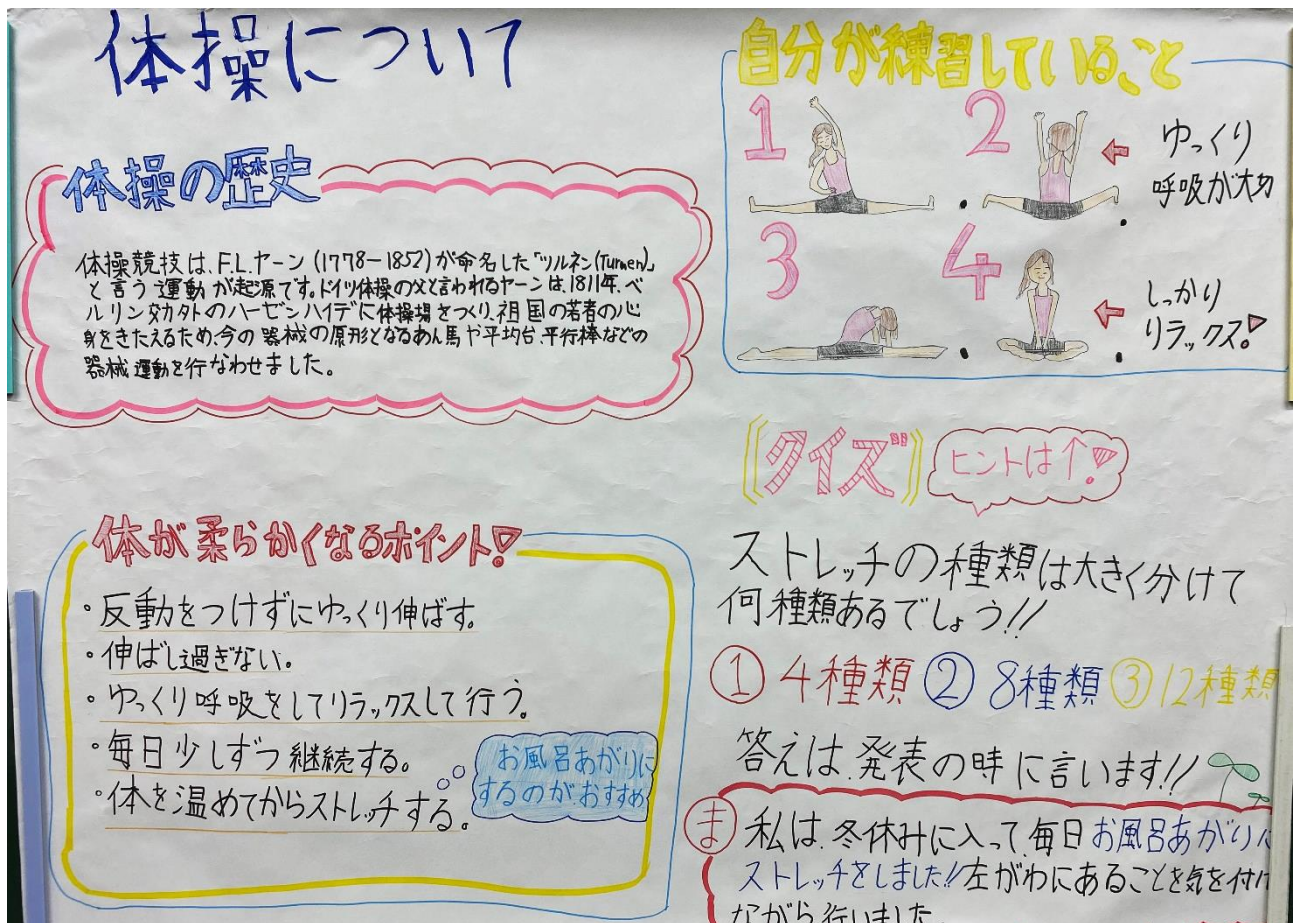 体操について
体操の歴史
体操競技は、F.L.ヤーン(1778-1852)が命名した「ツルネン(Turnen)」
と言う運動が起源です。ドイツ体操の父と言われるヤーンは、1811年、ベ
ルリン効外のハーゼンハイデに体操場をつくり、祖国の若者の心
身をきたえるため、今の器械の原形となるあん馬や平均台、平行棒などの
器械運動を行なわせました。
体が柔らかくなるポイント!
・反動をつけずにゆっくり伸ばす。
・伸ばし過ぎない。
・ゆっくり呼吸をしてリラックスして行う。
・毎日少しずつ継続する。
・体を温めてからストレッチする。
お風呂あがりに
するのがおすすめ
自分が練習していること
1
2
ゆっくり
呼吸が大切
3
4
しっかり
リラックス!
《クイズ》
ヒントは↑!
ストレッチの種類は大きく分けて
何種類あるでしょう!!
①4種類 ②8種類 ③12種類
答えは、発表の時に言います!!
ま 私は、冬休みに入って、毎日お風呂あがりに
ストレッチをしました!!左がわにあることを気を付け
ながら行いました